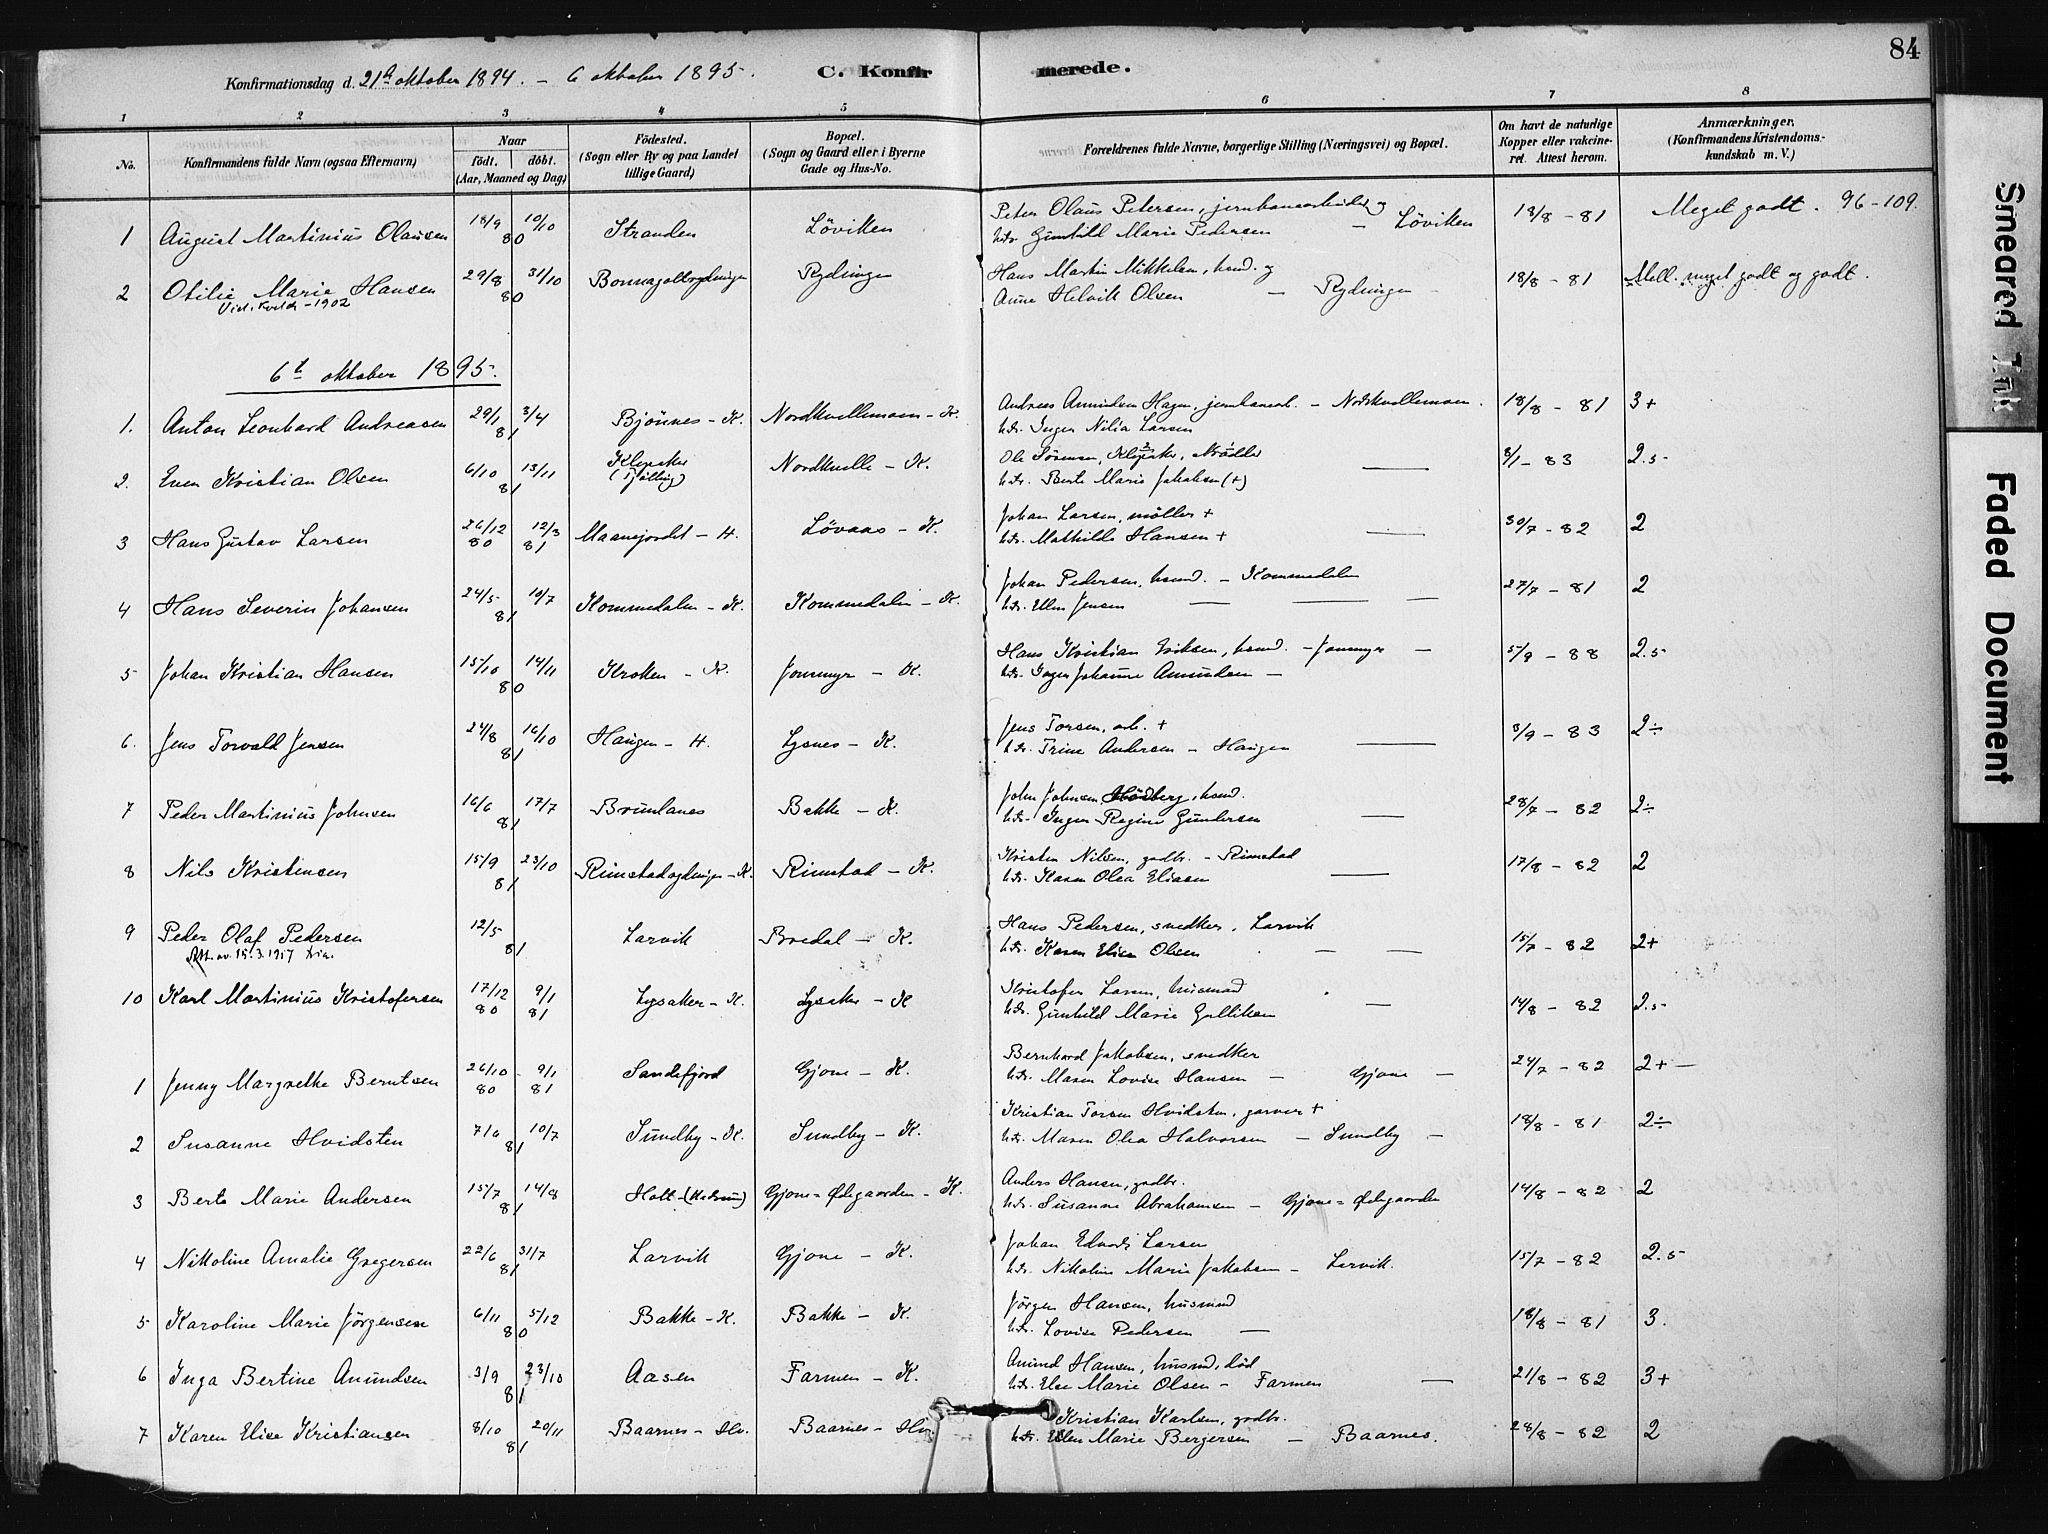 84
Konfirmationsdag d. 21de oktober 1894. – 6 oktober 1895. C. Konfirmerede.
1 2 3 4 5 6 7 8
No. Konfirmandens fulde Navn (ogsaa Efternavn) Naar födt. döbt. (Aar, Maaned og Dag) Födested. (Sogn eller By og paa Landet tillige Gaard) Bopæl. (Sogn og Gaard eller i Byerne Gade og Hus-No. Forældrenes fulde Navne, borgerlige Stilling (Næringsvei) og Bopæl. Om havt de naturlige Kopper eller vakcineret. Attest herom. Anmærkninger. (Konfirmandens Kristendomskundskab m. V.)
1 August Martinius Olausen 18/9 10/10 80 Stranden Löviken Peter Olaus Petersen, jernbanearbeider og
htr Gunhild Marie Pedersen – Löviken 18/8 – 81 Meget godt. 96–109.
2 Otilie Marie Hansen 29/8 31/10 80 Rydningen Hans Martin Mikkelsen, husmd. og
Anne Helvik Olsen – Rydningen 18/8 – 81 Mell. meget godt og godt.
– 1902
6t oktober 1895.
1. Anton Leonhard Andreasen 29/1 3/4 81 Bjönnes – K. Nordkvellemoen – K. Andreas Amundsen Hagen, jernbanearb. – Nordkvellemoen.
htr. Inger Nilia Larsen 18/8 – 81 3+
2. Even Kristian Olsen 6/10 13/11 81 Klepaker (Tjölling) Nordkvelle – K. Ole Sörensen, Klepaker, Möller
htr. Berte Marie Jakobsen (+) — 8/1 – 83 2.5
3 Hans Gustav Larsen 26/12 80 12/3 81 Maanejordet – H. Lövaas – K. Johan Larsen, möller +
htr. Mathilde Hansen + — 30/7 – 82 2
4 Hans Severin Johansen 24/5 10/7 81 Kommedalen – K. Kommedalen – K. Johan Pedersen, husmd. – Kommedalen
htr. Ellen Jensen — — — 27/7 – 81 2
5 Johan Kristian Hansen 15/10 14/11 80 Kroken – K. Jonsmyr – K. Hans Kristian Eriksen, husmd. – Jonsmyr –
htr. Inger Johanne Amundsen – 5/9 – 88 2.5
6. Jens Torvald Jensen 24/8 16/10 81 Haugen – H. Lysnes – K. Jens Torsen, arb. +
htr. Trine Andersen – Haugen — 3/9 – 83 2÷
7 Peder Martinius Johnsen 16/6 17/7 81 Brunlanes Bakke – K. John Johnsen Hödberg, husmd.
htr. Inger Regine Gundersen — 28/7 – 82 2÷
8 Nils Kristensen 15/9 23/10 81 Rimstadrydningen – K. Rimstad – K. Kristen Nilsen, gadbr. – Rimstad
htr. Karen Olea Eliasen — 17/8 – 82 2
9 Peder Olaf Pedersen 12/5 81 Larvik Bredal – K. Hans Pedersen, snedker, Larvik
htr. Karen Elise Olsen — — 15/7 – 82 2+
Att. av 15.3.1917
10 Karl Martinius Kristofersen 17/12 80 9/1 81 Lysaker – K. Lysaker – K Kristofer Larsen, husmand
htr. Gunhild Marie Gulliksen — 14/8 – 82 2.5
1 Jenny Margrethe Berntsen 26/10 80 9/1 81 Sandefjord Gjone – K. Bernhard Jakobsen, snedker
htr. Maren Lovise Hansen – Gjone – 24/7 – 82 2+ –
2 Susanne Hvidsten 7/6 10/7 81 Sundby – K. Sundby – K. Kristian Torsen Hvidsten, garver +
htr. Maren Olea Halvorsen – Sundby – 18/8 – 81 2÷
3 Berte Marie Andersen 15/7 14/8 81 Holt – (Hedrum) Gjone = Ødegaarden – K. Anders Hansen, gadbr.
htr. Susanne Abrahamsen – Gjone = Ødegaarden 14/8 – 82 2
4 Nikoline Amalie Gregersen 22/6 31/7 81 Larvik Gjone – K. Johan Edvard Larsen
htr. Nikoline Marie Jakobsen – Larvik. 15/7 – 82 2.5
5 Karoline Marie Jörgensen 6/11 5/12 80 Bakke – K. Bakke – K. Jörgen Hansen, husmand
htr. Lovise Pedersen — 18/8 – 81 3.
6 Inga Bertine Amundsen 3/9 23/10 81 Aasen Farmen – K. Amund Hansen, husmd, död
htr. Else Marie Olsen – Farmen — 21/8 – 82 3+
7 Karen Elise Kristiansen 8/10 20/11 81 Baarnes – Hv. Baarnes – Hv. Kristian Karlsen, gadbr.
htr. Ellen Marie Bergersen – Baarnes. 28/8 – 82 2
Smeared Ink
Faded Document